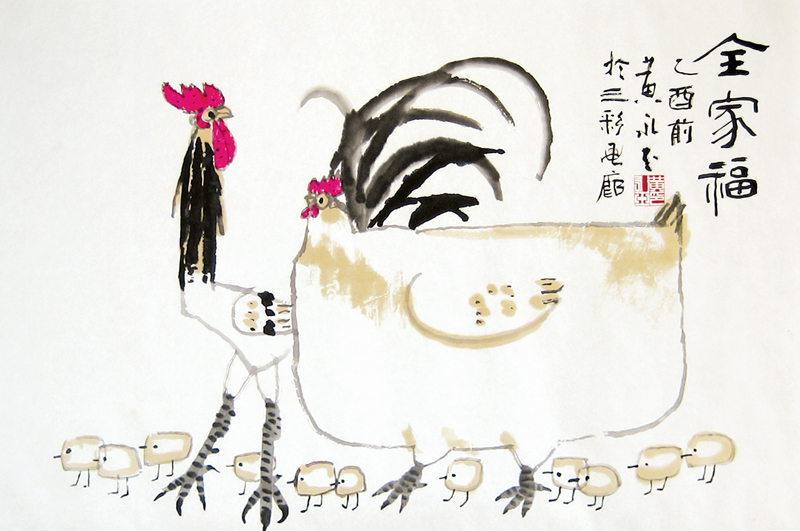 全家福
乙酉前
黄永玉
於三彩画廊